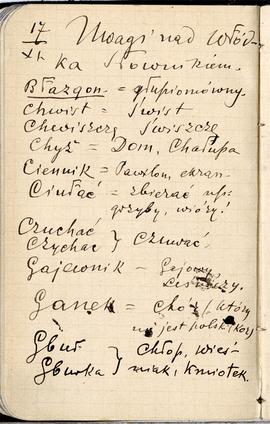 17/XI. Uwagi nad Włód-
ka Słownikiem.
Błazgon = głupiomówny
Chwist = Świst
Chwiszczę Świszczę
Chyż = Dom, Chałupa
Ciennik = Pawilon, ekran
Ciułać = zbierać np.
grzyby, wióry!
Czuchać
Czychać } Czuwać.
Gajewnik — Gajowy
Leśniczy.
Ganek = Chór / który
nie jest polski
Gbuł } Chłop, wieś-
Gburka } niak, kmiotek.